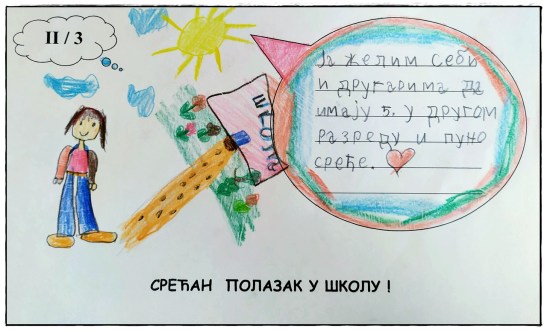 II / 3
ШКОЛА
Ја желим себи
и другарима да
имају 5. у другом
разреду и пуно
среће.
СРЕЋАН ПОЛАЗАК У ШКОЛУ !